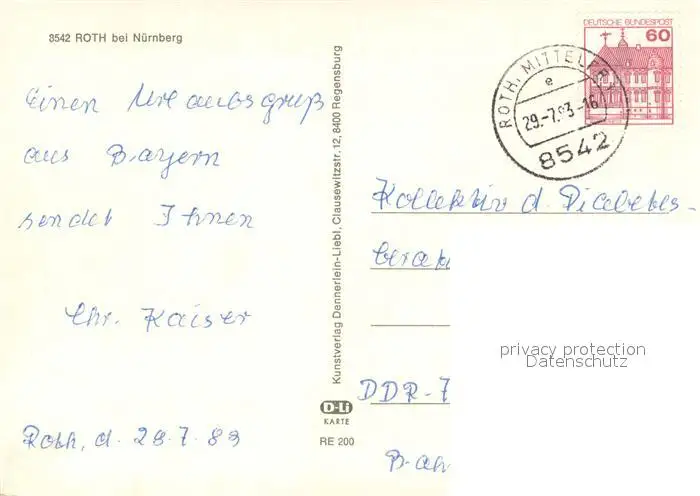 8542 ROTH bei Nürnberg
Einen Urlaubsgruß
aus Bayern
sendet Ihnen
Chr. Kaiser
Roth, d. 29.7.83
Kunstverlag Dennerlein-Liebl, Clausewitzstr. 12, 8400 Regensburg
D-Li
KARTE
RE 200
DEUTSCHE BUNDESPOST
60
ROTH, MITTELFR
e
29.-7.83-16
8542
Kollektiv d. Diabetes-
berat
DDR-7
Bah
privacy protection
Datenschutz